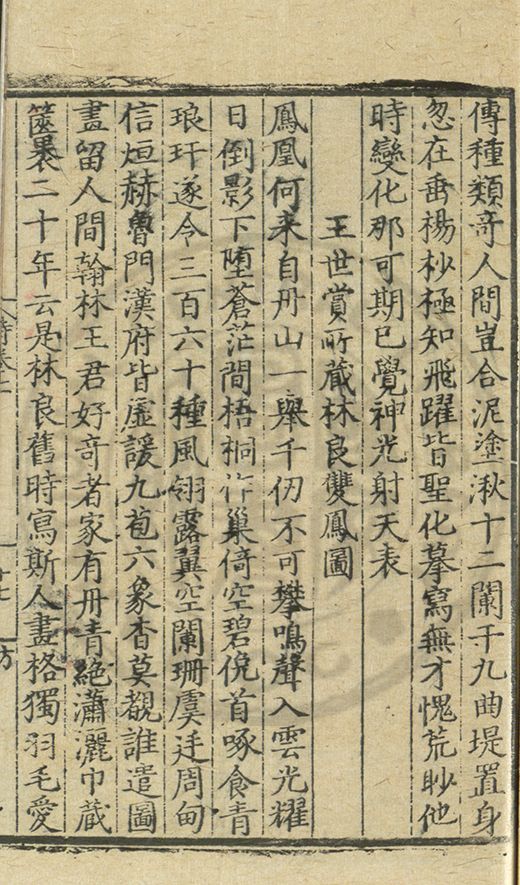 傳種類奇人間豈合泥塗湫十二闌干九曲堤置身
忽在垂楊杪極知飛躍皆聖化摹寫無才愧荒眇他
時變化那可期已覺神光射天表
王世賞所藏林良雙鳳圖
鳳凰何来自丹山一舉千仞不可攀鳴聲入雲光耀
日倒影下墮蒼茫間梧桐作巢倚空碧俛首啄食青
琅玕遂令三百六十種風翎露翼空闌珊虞廷周甸
信烜赫魯門漢府皆虛諼九苞六象杳莫覩誰遣圖
畫留人間翰林王君好奇者家有丹青絶瀟灑巾蔵
篋褁二十年云是林良舊時寫斯人畫格獨羽毛愛